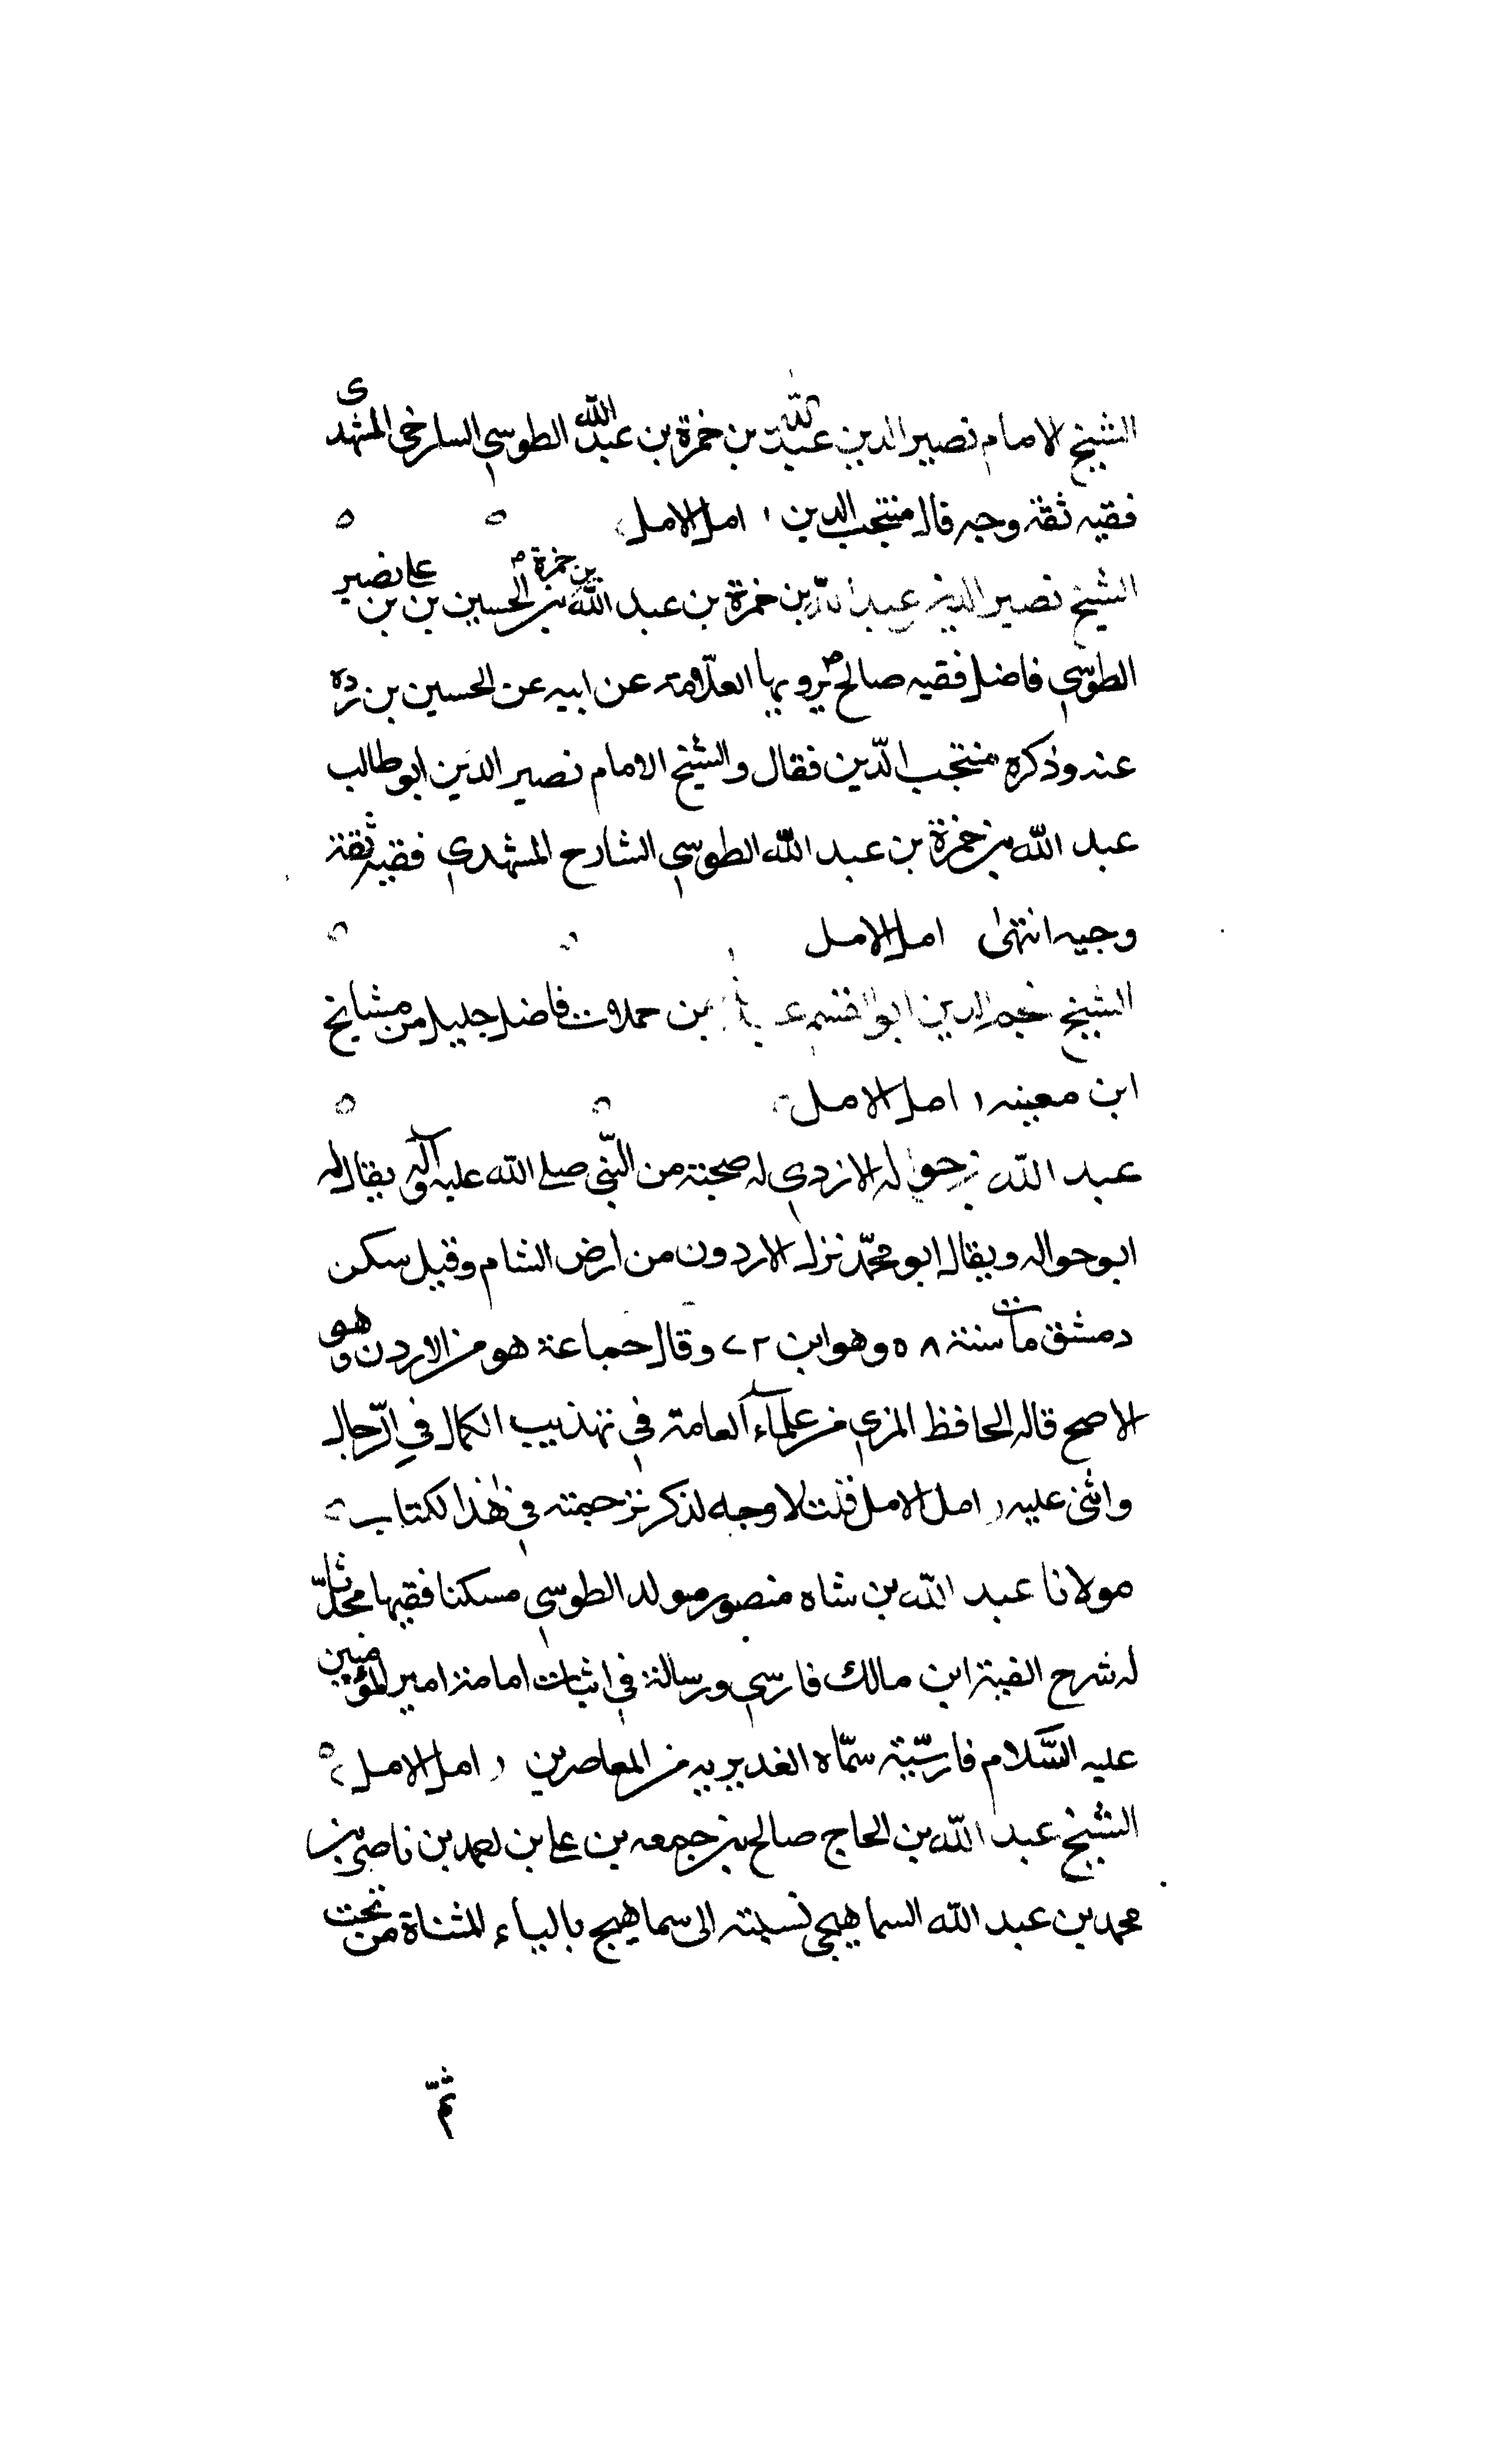 الشيخ الامام نصير الدين عبد الله بن حمزة بن عبد الله الطوسي السارخي المشهدى
فقيه ثقة وجه قال منتجب الدين ، امل الامل
الشيخ نصير الدين عبد الله بن حمزة بن عبد الله بن حمزة بن الحسين بن على بن نصير
الطوسي فاضل فقيه صالح يرويها العلّامة عن ابيه عن الحسين بن رده
عنه وذكره منتجب الدّين فقال والشيخ الامام نصير الدين ابو طالب
عبد الله بن حمزة بن عبد الله الطوسي الشارح المشهدي فقيه ثقة
وجيه انتهى امل الامل
الشيخ نجم الدين ابو القسم بن حملات فاضل جليل من مشايخ
ابن معيه ، امل الامل
عبد الله بن حواله الازدي له صحبة من النّبي صلى الله عليه وآله يقال له
ابو حواله ويقال ابو محمّد نزل الاردون من ارض الشام وقيل سكن
دمشق مات سنة ٥٨ وهو ابن ٧٢ وقال جماعة هو من الاردن وهو
الاصح قاله الحافظ المزي من علماء العامة في تهذيب الكمال في الرّجال
واثنى عليه ، امل الامل قلت لا وجه لذكر ترجمته في هذا الكتاب
مولانا عبد الله بن شاه منصور مولدا الطوسي مسكنا فقيها محدّثا
له شرح الفية ابن مالك فارسي ورسالة في اثبات امامة امير المؤمنين
عليه السّلام فارسيّة سمّاه الغديريه من المعاصرين ، امل الامل
الشيخ عبد الله بن الحاج صالح بن جمعه بن على بن احمد بن ناصر بن
محمد بن عبد الله السماهيجي نسبته الى سماهيج بالياء المثناة من تحت
ثمّ